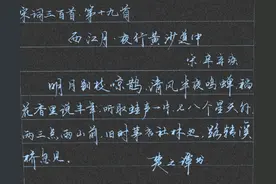 宋词三百首·第十九首
西江月·夜行黄沙道中
宋 辛弃疾
明月别枝惊鹊,清风半夜鸣蝉。稻
花香里说丰年,听取蛙声一片。七八个星天外,
两三点雨山前。旧时茅店社林边,路转溪
桥忽见。